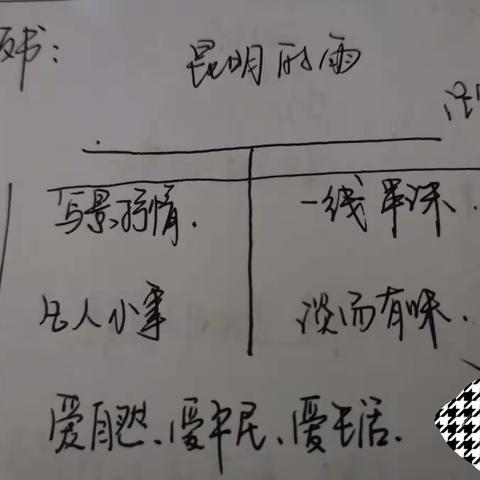 板书:
昆明的雨
写景抒情. 一线串珠.
凡人小事 淡而有味.
爱自然、爱平民、爱生活.